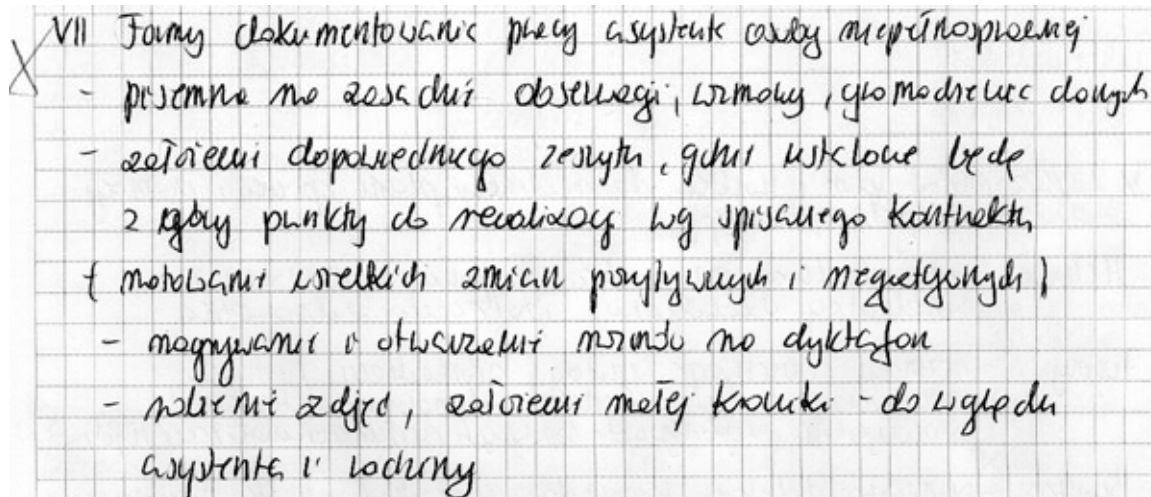 VII Formy dokumentowania pracy asystenta osoby niepełnosprawnej
- pisemna na zasadzie obserwacji, rozmowy, gromadzenie danych
- założenie odpowiedniego zeszytu, gdzie ustalone będą
z góry punkty do realizacji wg spisanego kontraktu
(notowanie wszelkich zmian pozytywnych i negatywnych)
- nagrywanie i otwarzanie na dyktafon
- robienie zdjęć, założenie małej kroniki - do wglądu
asystenta i rodziny